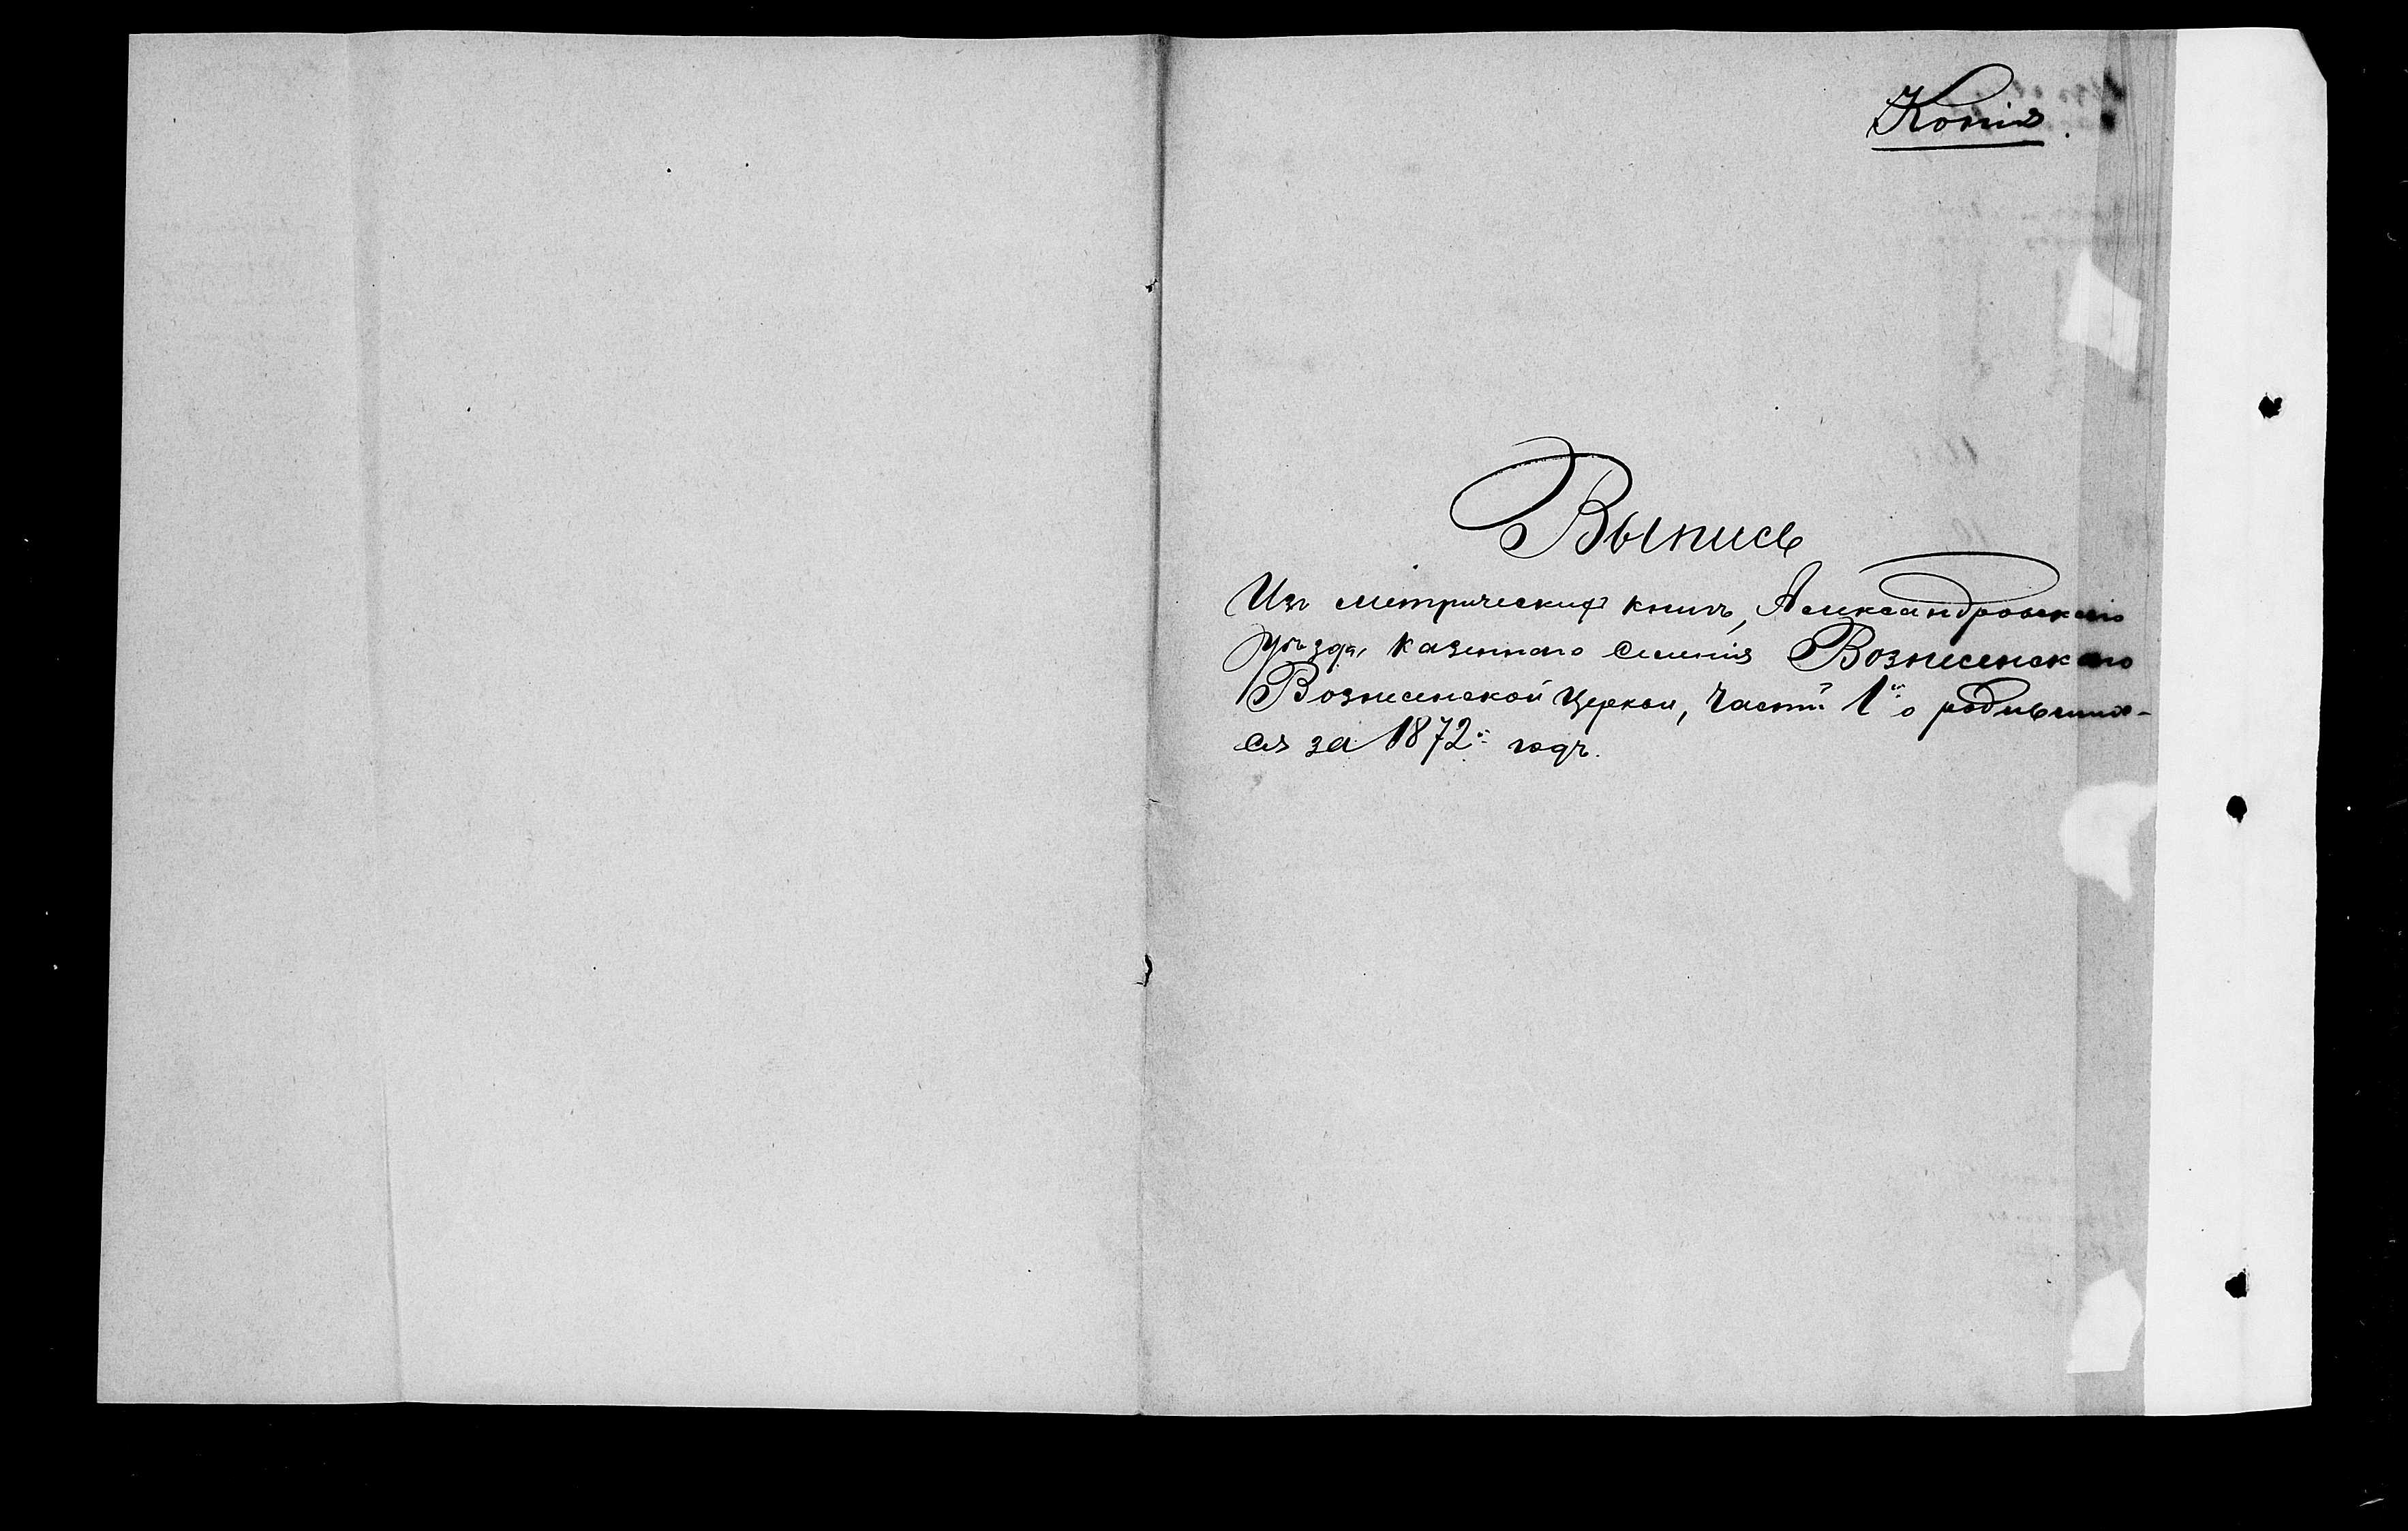 Копія.
Выпись
Изъ метрическихъ книгъ, Александровскаго
уѣзда, казеннаго селенія Вознесенскаго
Вознесенской Церкви, Части 1й о родившихъ-
ся за 1872й годъ.